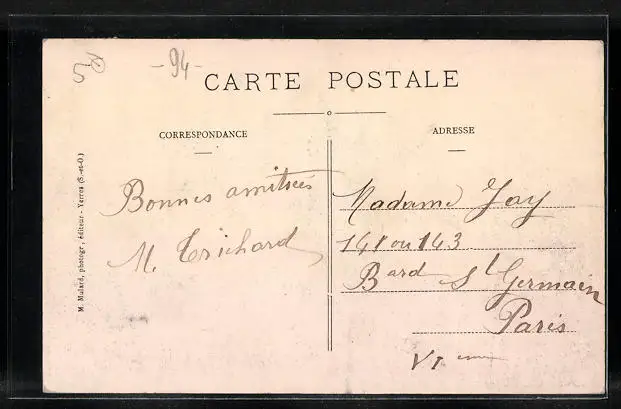 - 94 -
CARTE POSTALE
CORRESPONDANCE
ADRESSE
M. Mulard, photogr, éditeur - Yerres (S.-et-O.)
Bonnes amitiées
M. Trichard
Madame Jay
141 ou 143
Bard St Germain
Paris
VIeme